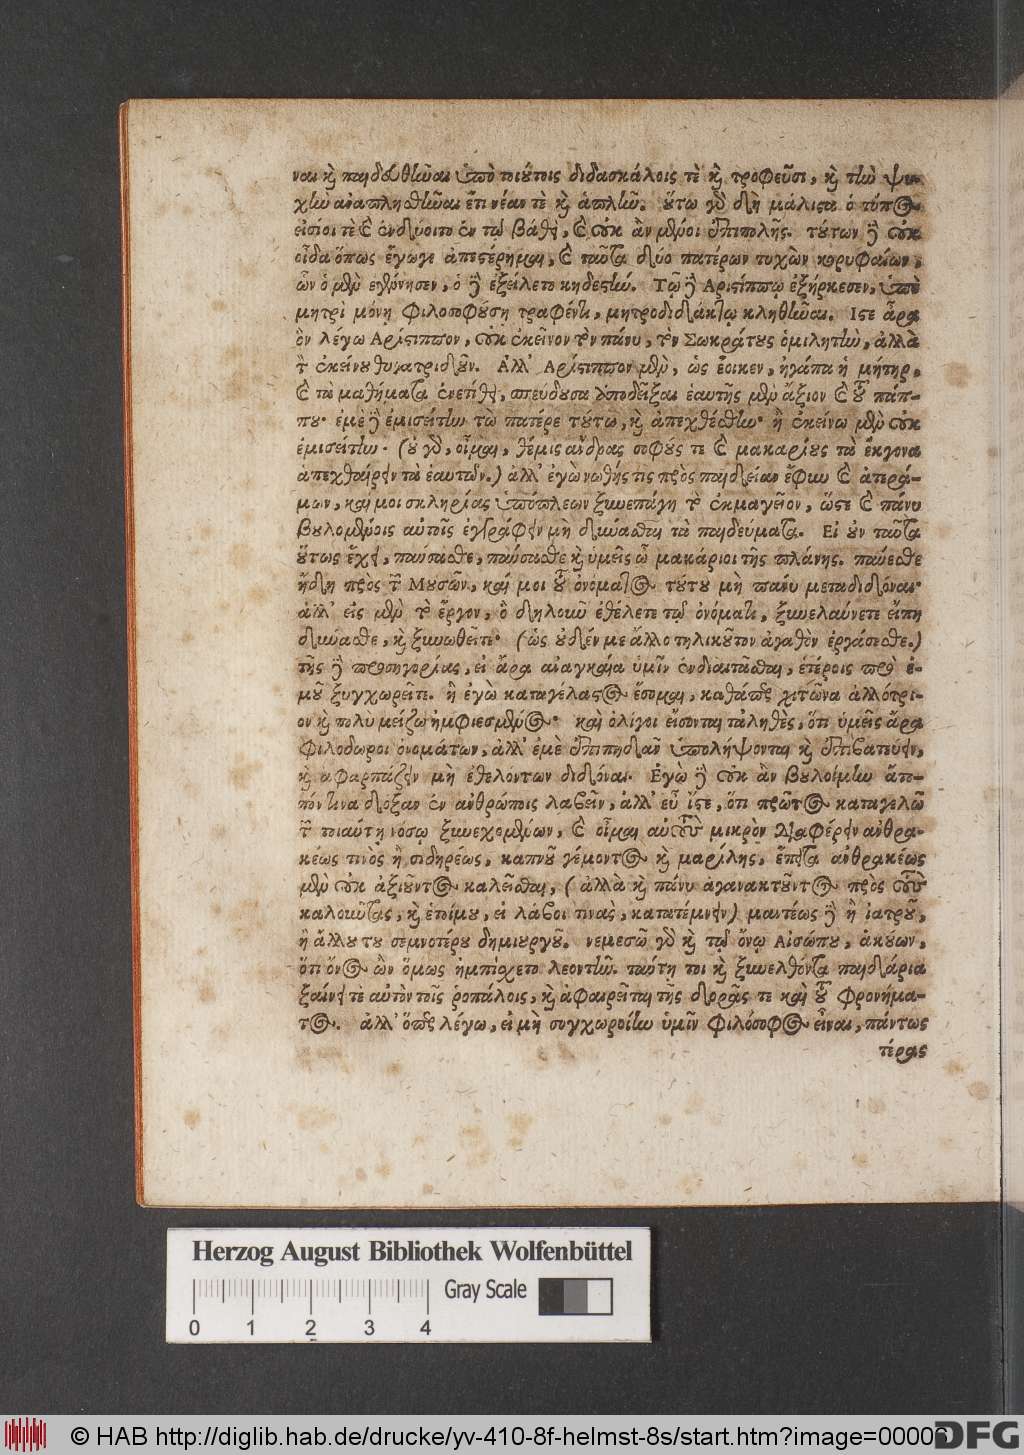 ναι καὶ παιδευθῆναι ὑπὸ τοιούτοις διδασκάλοις τὲ καὶ τροφεῦσι, καὶ τὴν ψυ-
χὴν ἀναπλησθῆναι ἔτι νέαν τὲ καὶ ἁπλῆν. οὕτω γὸ δὴ μάλιστα ὁ τύπος
εἰσίοι τὲ καὶ ἐνδύοιτο ἐν τῷ βάθει, καὶ οὐκ ἂν μένοι ἐπιπολῆς. τούτων δὲ οὐκ
οἶδα ὅπως ἔγωγε ἀπεστέρημαι, καὶ ταῦτα δύο πατέρων τυχὼν κορυφαίων,
ὧν ὁ μὲν ἐγέννησεν, ὁ δὲ ἐξείλετο κηδεστήν. Τῷ δὲ Ἀριστίππῳ ἐξήρκεσεν, ὑπὸ
μητρὶ μόνῃ φιλοσοφούσῃ τραφέντι, μητροδιδάκτῳ κληθῆναι. Ἴστε ἆρα
ὃν λέγω Ἀρίστιππον, οὐκ ἐκεῖνον τὸν πάνυ, τὸν Σωκράτους ὁμιλητὴν, ἀλλὰ
τὸν ἐκείνου θυγατριδοῦν. Ἀλλ' Ἀρίστιππον μὲν, ὡς ἔοικεν, ἠγάπα ἡ μήτηρ,
καὶ τὰ μαθήματα ἐνετίθει, σπεύδουσα ἀποδεῖξαι ἑαυτῆς μὲν ἄξιον καὶ τοῦ πάπ-
που· ἐμὲ δὲ ἐμισείτην τὼ πατέρε τούτω, καὶ ἀπεχθέσθην· ἢ ἐκείνω μὲν οὐκ
ἐμισείτην· (οὐ γὸ, οἶμαι, θέμις ἄνδρας σοφούς τε καὶ μακαρίους τὰ ἔκγονα
ἀπεχθαίρειν τὰ ἑαυτῶν.) ἀλλ' ἐγὼ νωθής τις πρὸς παιδείαν ἔφυν καὶ ἀτερά-
μων, καί μοι σκληρίας ὑπόπλεων ξυνεπάγη τὸ ἐκμαγεῖον, ὥστε καὶ πάνυ
βουλομένοις αὐτοῖς ἐγγράφειν μὴ δύνασθαι τὰ παιδεύματα. Εἰ οὖν ταῦτα
οὕτως ἔχει, παύσασθε, παύσασθε καὶ ὑμεῖς ὦ μακάριοι τῆς πλάνης. παύεσθε
ἤδη πρὸς τῶν Μουσῶν, καί μοι τοῦ ὀνόματος τούτου μὴ πάνυ μεταδιδόναι·
ἀλλ' εἰς μὲν τὸ ἔργον, ὃ δηλοῦν ἐθέλετε τῷ ὀνόματι, ξυνελαύνετε εἴπῃ
δύνασθε, καὶ ξυνωθεῖτε· (ὡς οὐδέν με ἄλλο τηλικοῦτον ἀγαθὸν ἐργάσεσθε.)
τῆς δὲ προσηγορίας, εἰ ἄρα ἀναγκαία ὑμῖν ἐνδιαιτᾶσθαι, ἑτέροις πρὸ ἐ-
μοῦ ξυγχωρεῖτε. ἢ ἐγὼ καταγέλαστος ἔσομαι, καθάπερ χιτῶνα ἀλλότρι-
ον καὶ πολὺ μείζω ἠμφιεσμένος· καὶ ὀλίγοι εἴσονται τἀληθὲς, ὅτι ὑμεῖς ἄρα
φιλόδωροι ὀνομάτων, ἀλλ' ἐμὲ ἐπιπηδᾶν ὑπολήψονται καὶ ἐπιβατεύειν,
καὶ ἀφαρπάζειν μὴ ἐθελόντων διδόναι. Ἐγὼ δὲ οὐκ ἂν βουλοίμην ἄτο-
πόν τινα δόξαν ἐν ἀνθρώποις λαβεῖν, ἀλλ' εὖ ἴστε, ὅτι πρῶτος καταγελῶ
τῶν τοιαύτῃ νόσῳ ξυνεχομένων, καὶ οἶμαι αὐτοὺς μικρὸν διαφέρειν ἀνθρα-
κέως τινὸς ἢ σιδηρέως, καπνοῦ γέμοντος καὶ μαρίλης, ἔπειτα ἀνθρακέως
μὲν οὐκ ἀξιοῦντος καλεῖσθαι, (ἀλλὰ καὶ πάνυ ἀγανακτοῦντος πρὸς τοὺς
καλοῦντας, καὶ ἑτοίμου, εἰ λάβοι τινὰς, κατατέμνειν) μαντέως δὲ ἢ ἰατροῦ,
ἢ ἄλλου του σεμνοτέρου δημιουργοῦ. νεμεσῶ γὸ καὶ τῷ ὄνῳ Αἰσώπου, ἀκούων,
ὅτι ὄνος ὢν ὅμως ἠμπίσχετο λεοντῆν. ταύτῃ τοι καὶ ξυνελθόντα παιδάρια
ξαίνει τὲ αὐτὸν τοῖς ῥοπάλοις, καὶ ἀφαιρεῖται τῆς δορᾶς τε καὶ τοῦ φρονήμα-
τος. ἀλλ' ὅπερ λέγω, εἰ μὴ συγχωροίην ὑμῖν φιλόσοφος εἶναι, πάντως
τέρας
Herzog August Bibliothek Wolfenbüttel
Gray Scale
0 1 2 3 4
© HAB http://diglib.hab.de/drucke/yv-410-8f-helmst-8s/start.htm?image=00006
DFG